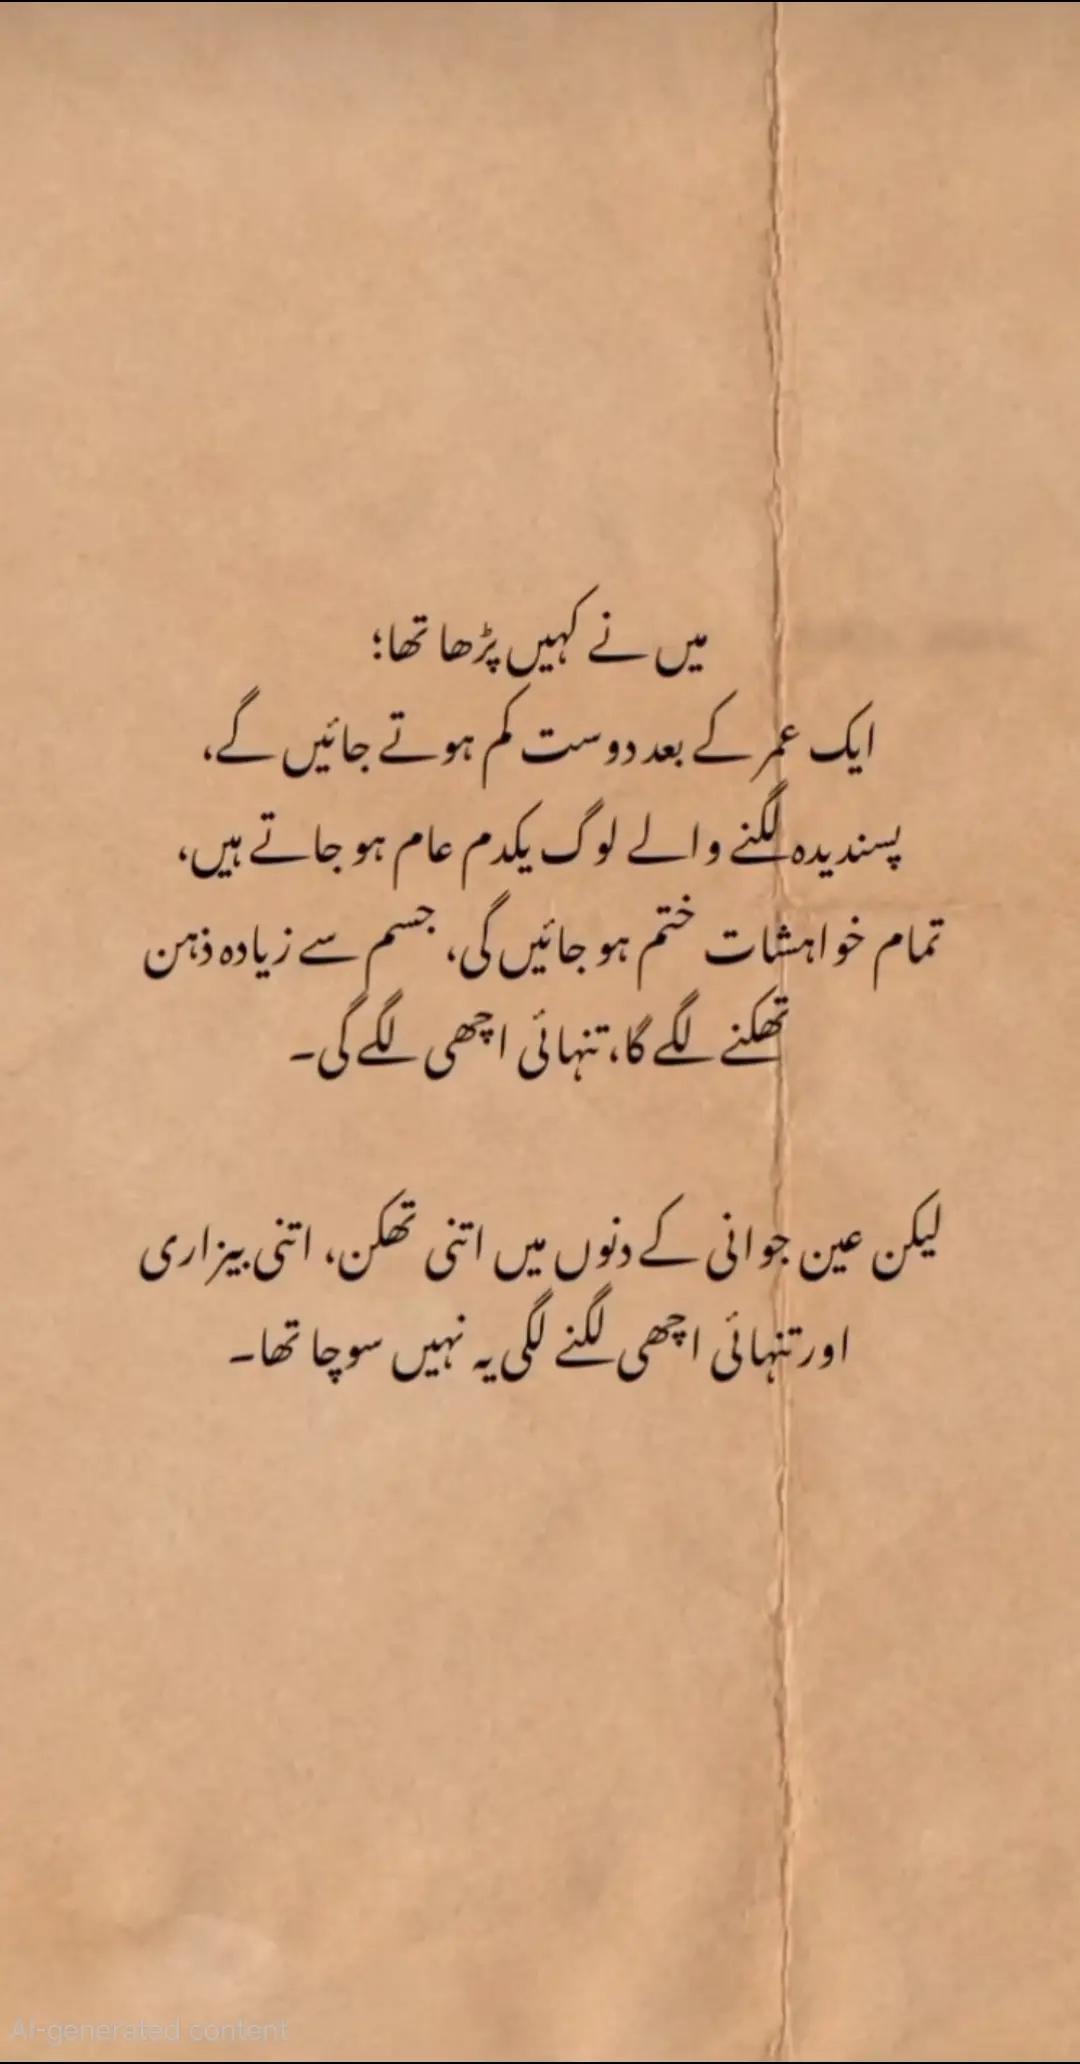 میں نے کہیں پڑھا تھا؛
ایک عمر کے بعد دوست کم ہوتے جائیں گے،
پسندیدہ لگنے والے لوگ یکدم عام ہو جاتے ہیں،
تمام خواہشات ختم ہو جائیں گی، جسم سے زیادہ ذہن
تھکنے لگے گا، تنہائی اچھی لگے گی۔
لیکن عین جوانی کے دنوں میں اتنی تھکن، اتنی بیزاری
اور تنہائی اچھی لگنے لگی یہ نہیں سوچا تھا۔
AI-generated content